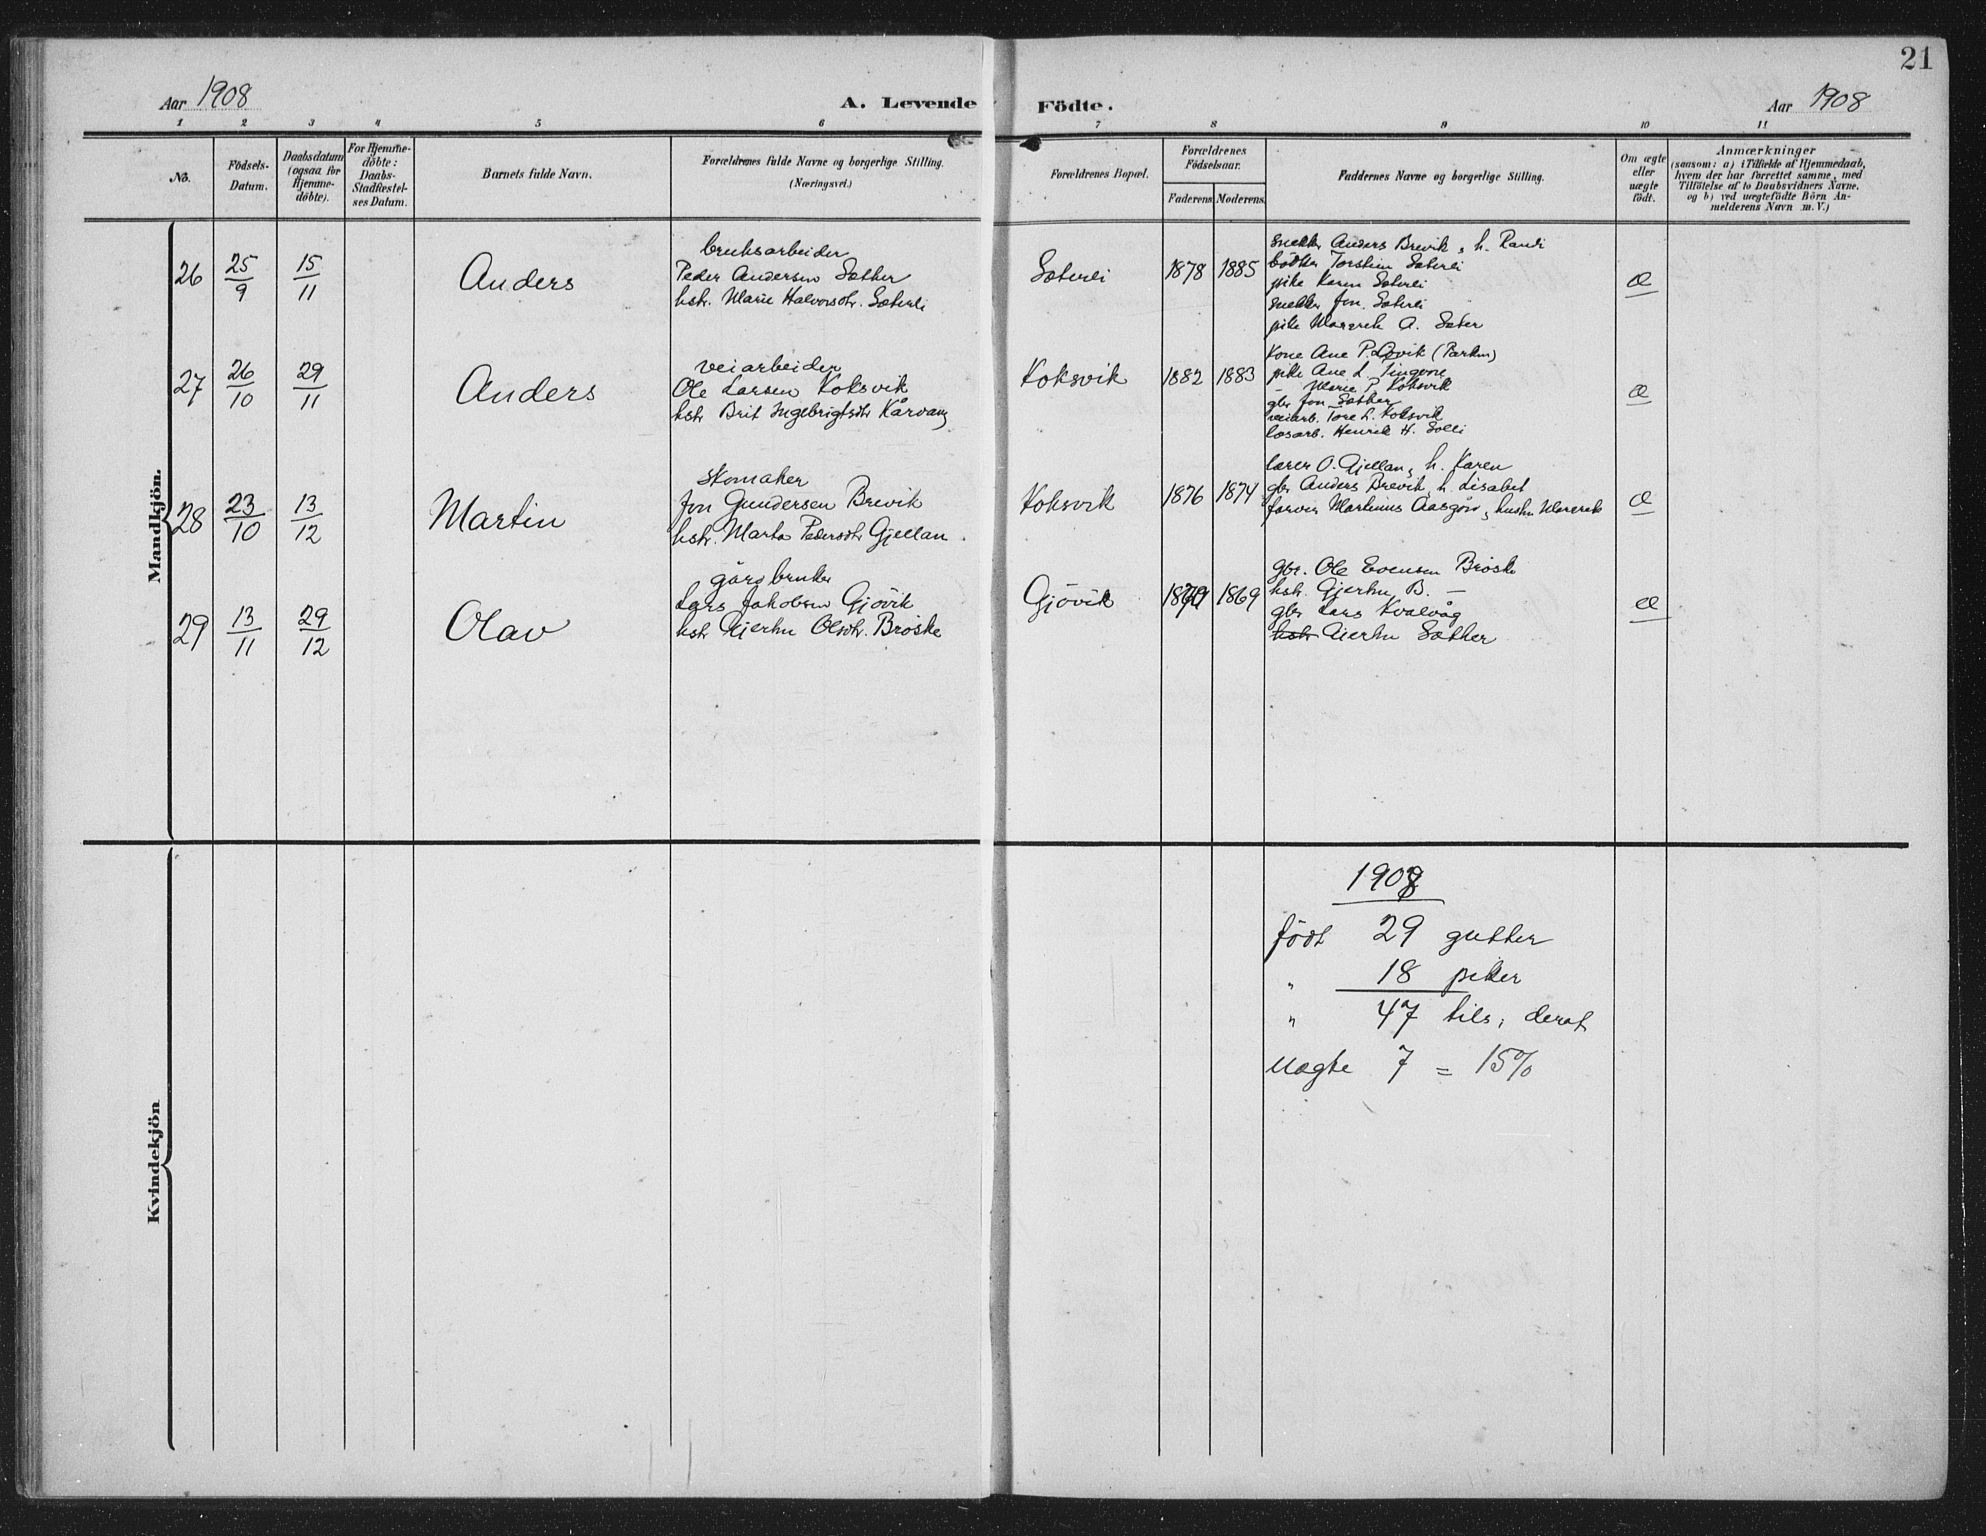 21
Aar 1908
A. Levende Födte.
Aar 1908
1 2 3 4 5 6 7 8 9 10 11
No.
Födsels-
Datum.
Daabsdatum
(ogsaa for
Hjemme-
döbte).
For Hjemme-
döbte:
Daabs-
Stadfæstel-
ses Datum.
Barnets fulde Navn.
Forældrenes fulde Navne og borgerlige Stilling.
(Næringsvei.)
Forældrenes Bopæl.
Forældrenes
Födselsaar.
Faderens Moderens
Faddernes Navne og borgerlige Stilling.
Om ægte
eller
uægte
födt.
Anmærkninger
(saasom: a) i Tilfælde af Hjemmedaab,
hvem der har forrettet samme, med
Tilföielse af to Daabsvidners Navne,
og b) ved uægtefödte Börn An-
melderens Navn m. V.)
Mandkjön.
26
25/9
15/11
Anders
bruksarbeider
Peder Andersen Sæther
hstr. Marie Halvorsdtr. Sæterli
Sæterli
1878 1885
Anders Brevik, h. Randi
Torstein Sæterli
pike Karen Sæterli
Jon Sæterli
pike A. Sæter
Æ
27
26/10
29/11
Anders
veiarbeider
Ole Larsen Koksvik
hstr Brit Ingebrigtsdtr Kårvang
Koksvik
1882 1883
Kone Ane P. Løvik
pike Ane L. Tingvoll
– Marie P. Koksvik
gbr Jon Sæther
veiarb. Tore L. Koksvik
løsarb. Henrik H. Solli
Æ
28
23/10
13/12
Martin
Skomaker
Jon Gundersen Brevik
hstr. Marta Pedersdtr Gjellan.
Koksvik
1876 1874
lærer O. Gjellan, h. Karen
gbr Anders Brevik, h. Lisabet
farver Martinus
Æ
29
13/11
29/12
Olav
gårdbruker
Lars Jakobsen Gjövik
hstr Gjertru Olsdtr. Bröske
Gjövik
1869
gbr. Ole Evensen Bröske
hstr. Gjertru B. –
gbr Lars Kvalvåg
hstr Gjertru Sæther
Æ
Kvindekjön
1908
födt 29 gutter
" 18 piker
" 47 tils, derat
uægte 7 = 15%